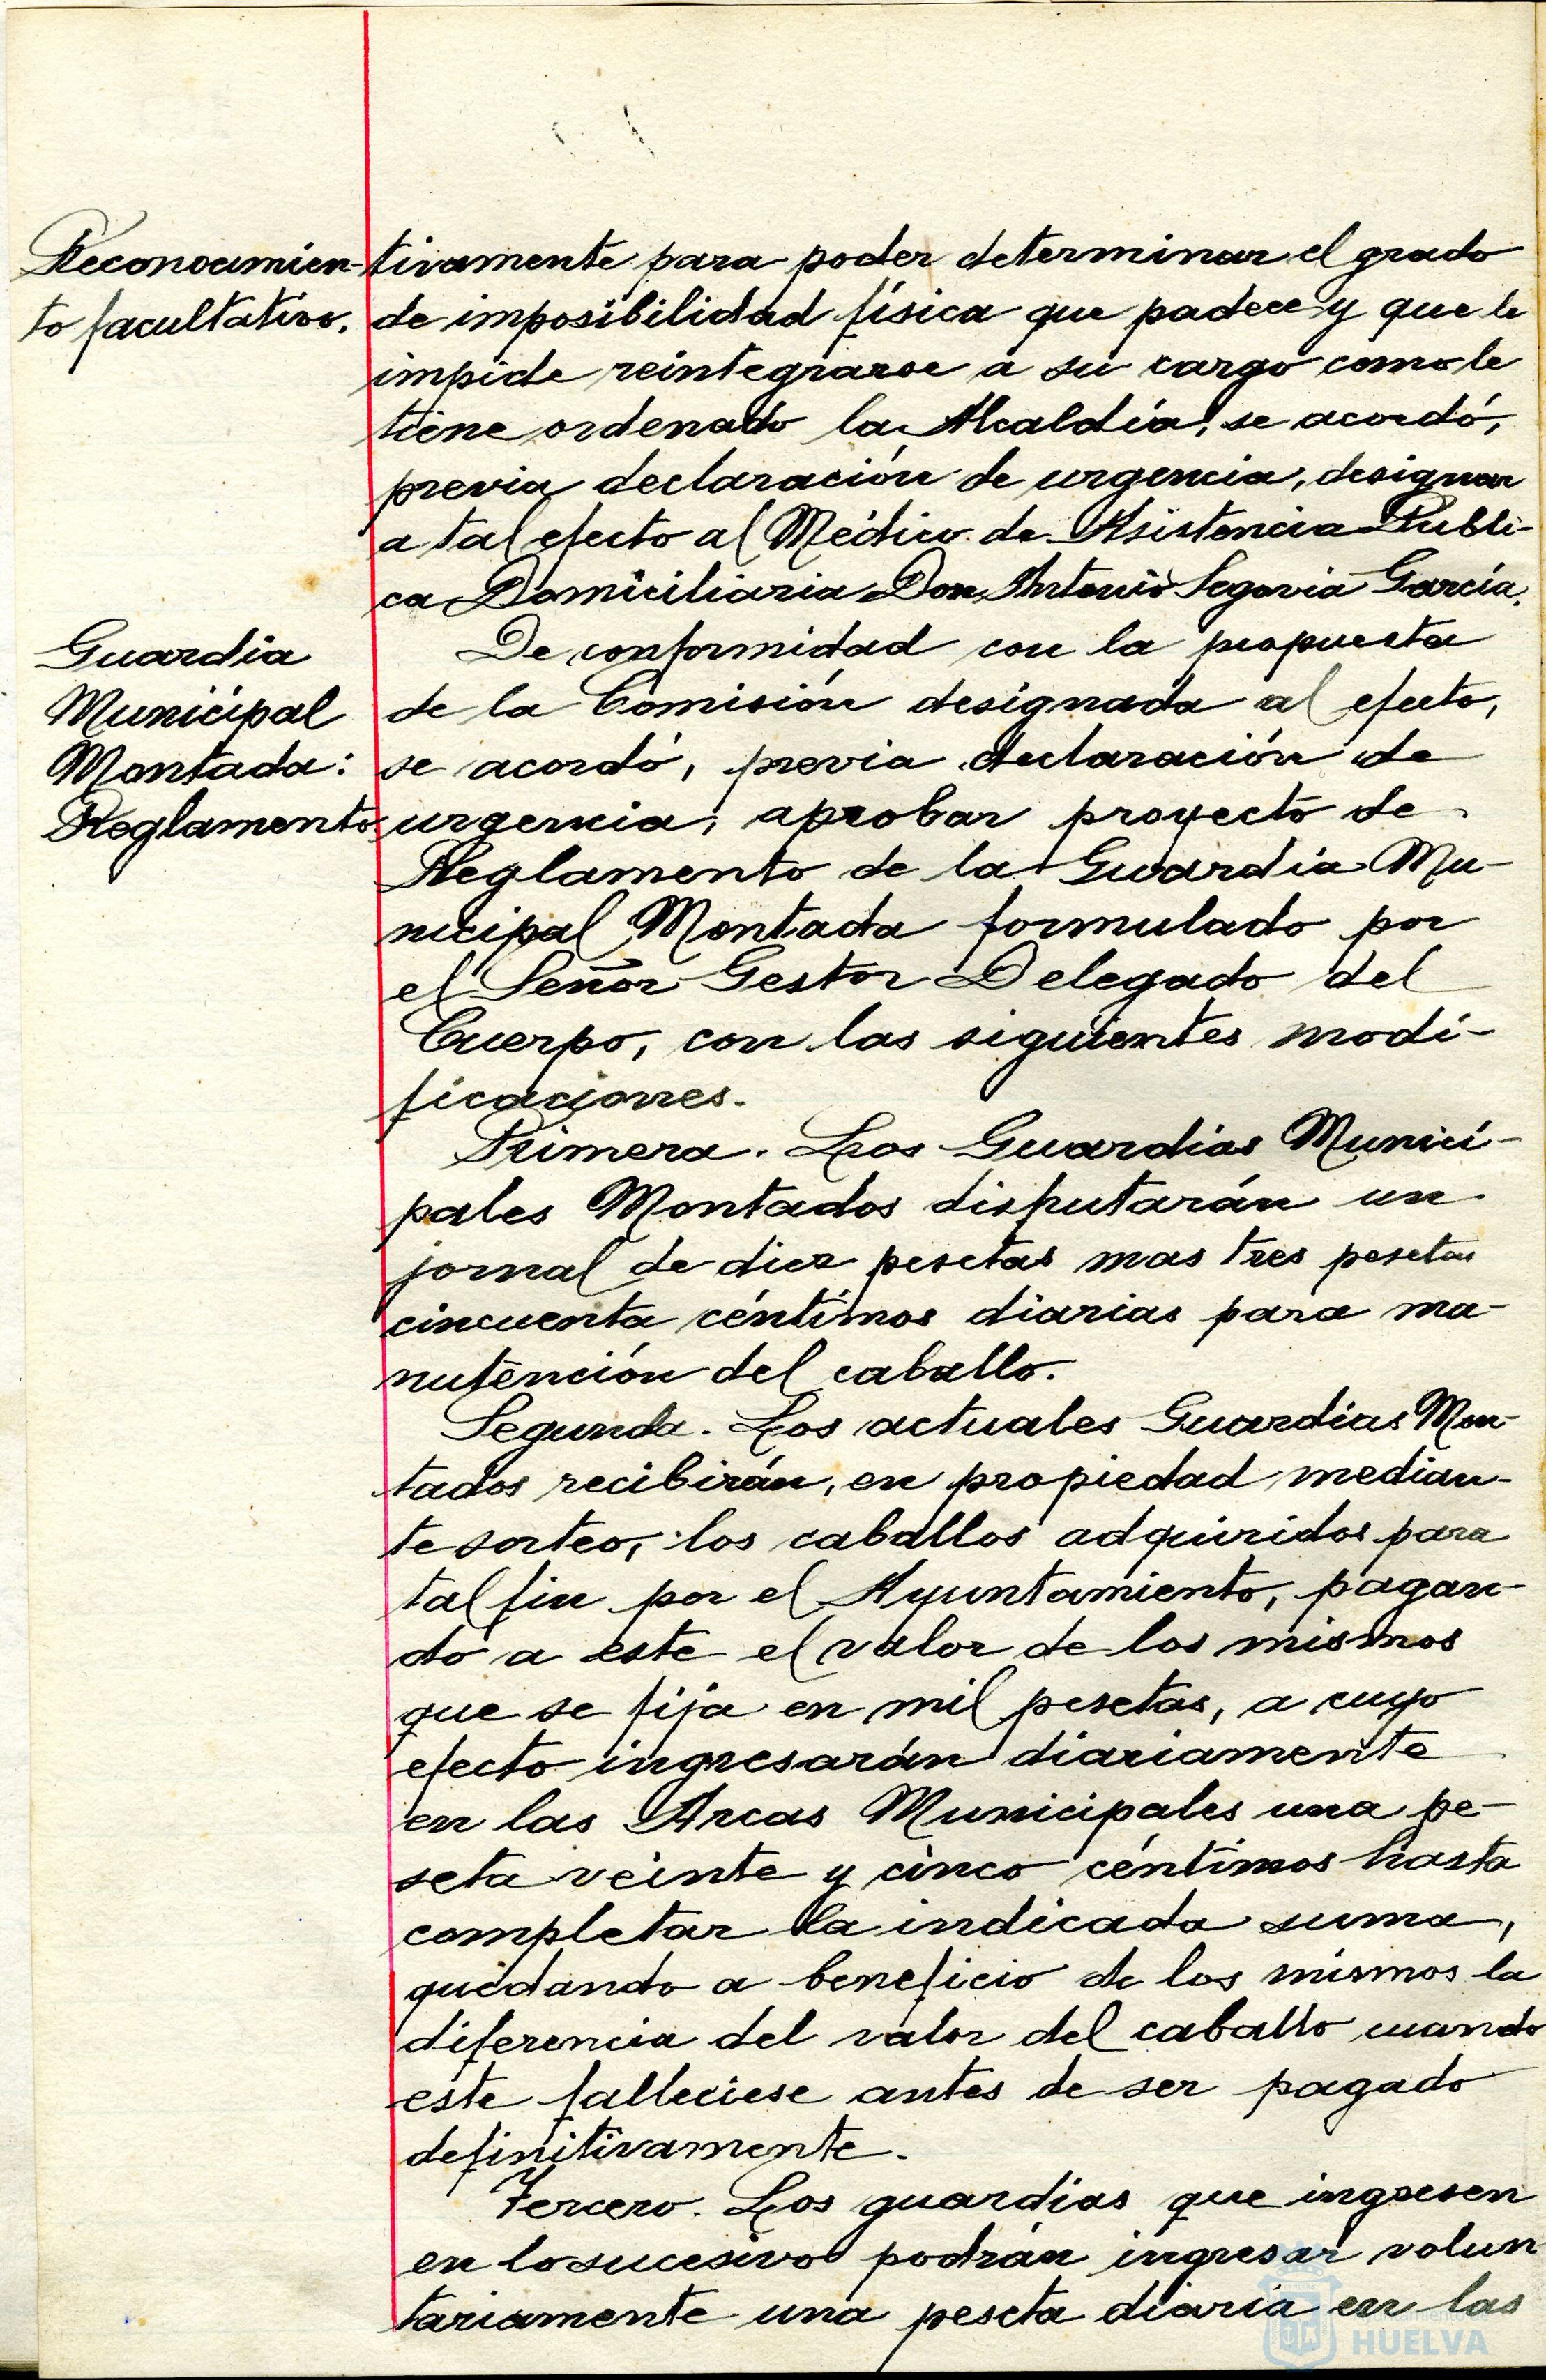 Reconocimien-
to facultativo.
tivamente para poder determinar el grado
de imposibilidad física que padece y que le
impide reintegrarse a su cargo como le
tiene ordenado la Alcaldía, se acordó,
previa declaración de urgencia, designar
a tal efecto al Médico de Asistencia Públi-
ca Domiciliaria Don Antonio Segovia García.
Guardia
Municipal
Montada:
Reglamento.
De conformidad con la propuesta
de la Comisión designada al efecto,
se acordó, previa declaración de
urgencia, aprobar proyecto de
Reglamento de la Guardia Mu-
nicipal Montada formulado por
el Señor Gestor Delegado del
Cuerpo, con las siguientes modi-
ficaciones.
Primera. Los Guardias Munici-
pales Montados disfrutarán un
jornal de diez pesetas mas tres pesetas
cincuenta céntimos diarias para ma-
nutención del caballo.
Segunda. Los actuales Guardias Mon-
tados recibirán, en propiedad median-
te sorteo, los caballos adquiridos para
tal fin por el Ayuntamiento, pagan-
do a este el valor de los mismos
que se fija en mil pesetas, a cuyo
efecto ingresarán diariamente
en las Arcas Municipales una pe-
seta veinte y cinco céntimos hasta
completar la indicada suma,
quedando a beneficio de los mismos la
diferencia del valor del caballo cuando
este falleciese antes de ser pagado
definitivamente.
Tercero. Los guardias que ingresen
en lo sucesivo podrán ingresar volun
tariamente una peseta diaria en las
HUELVA